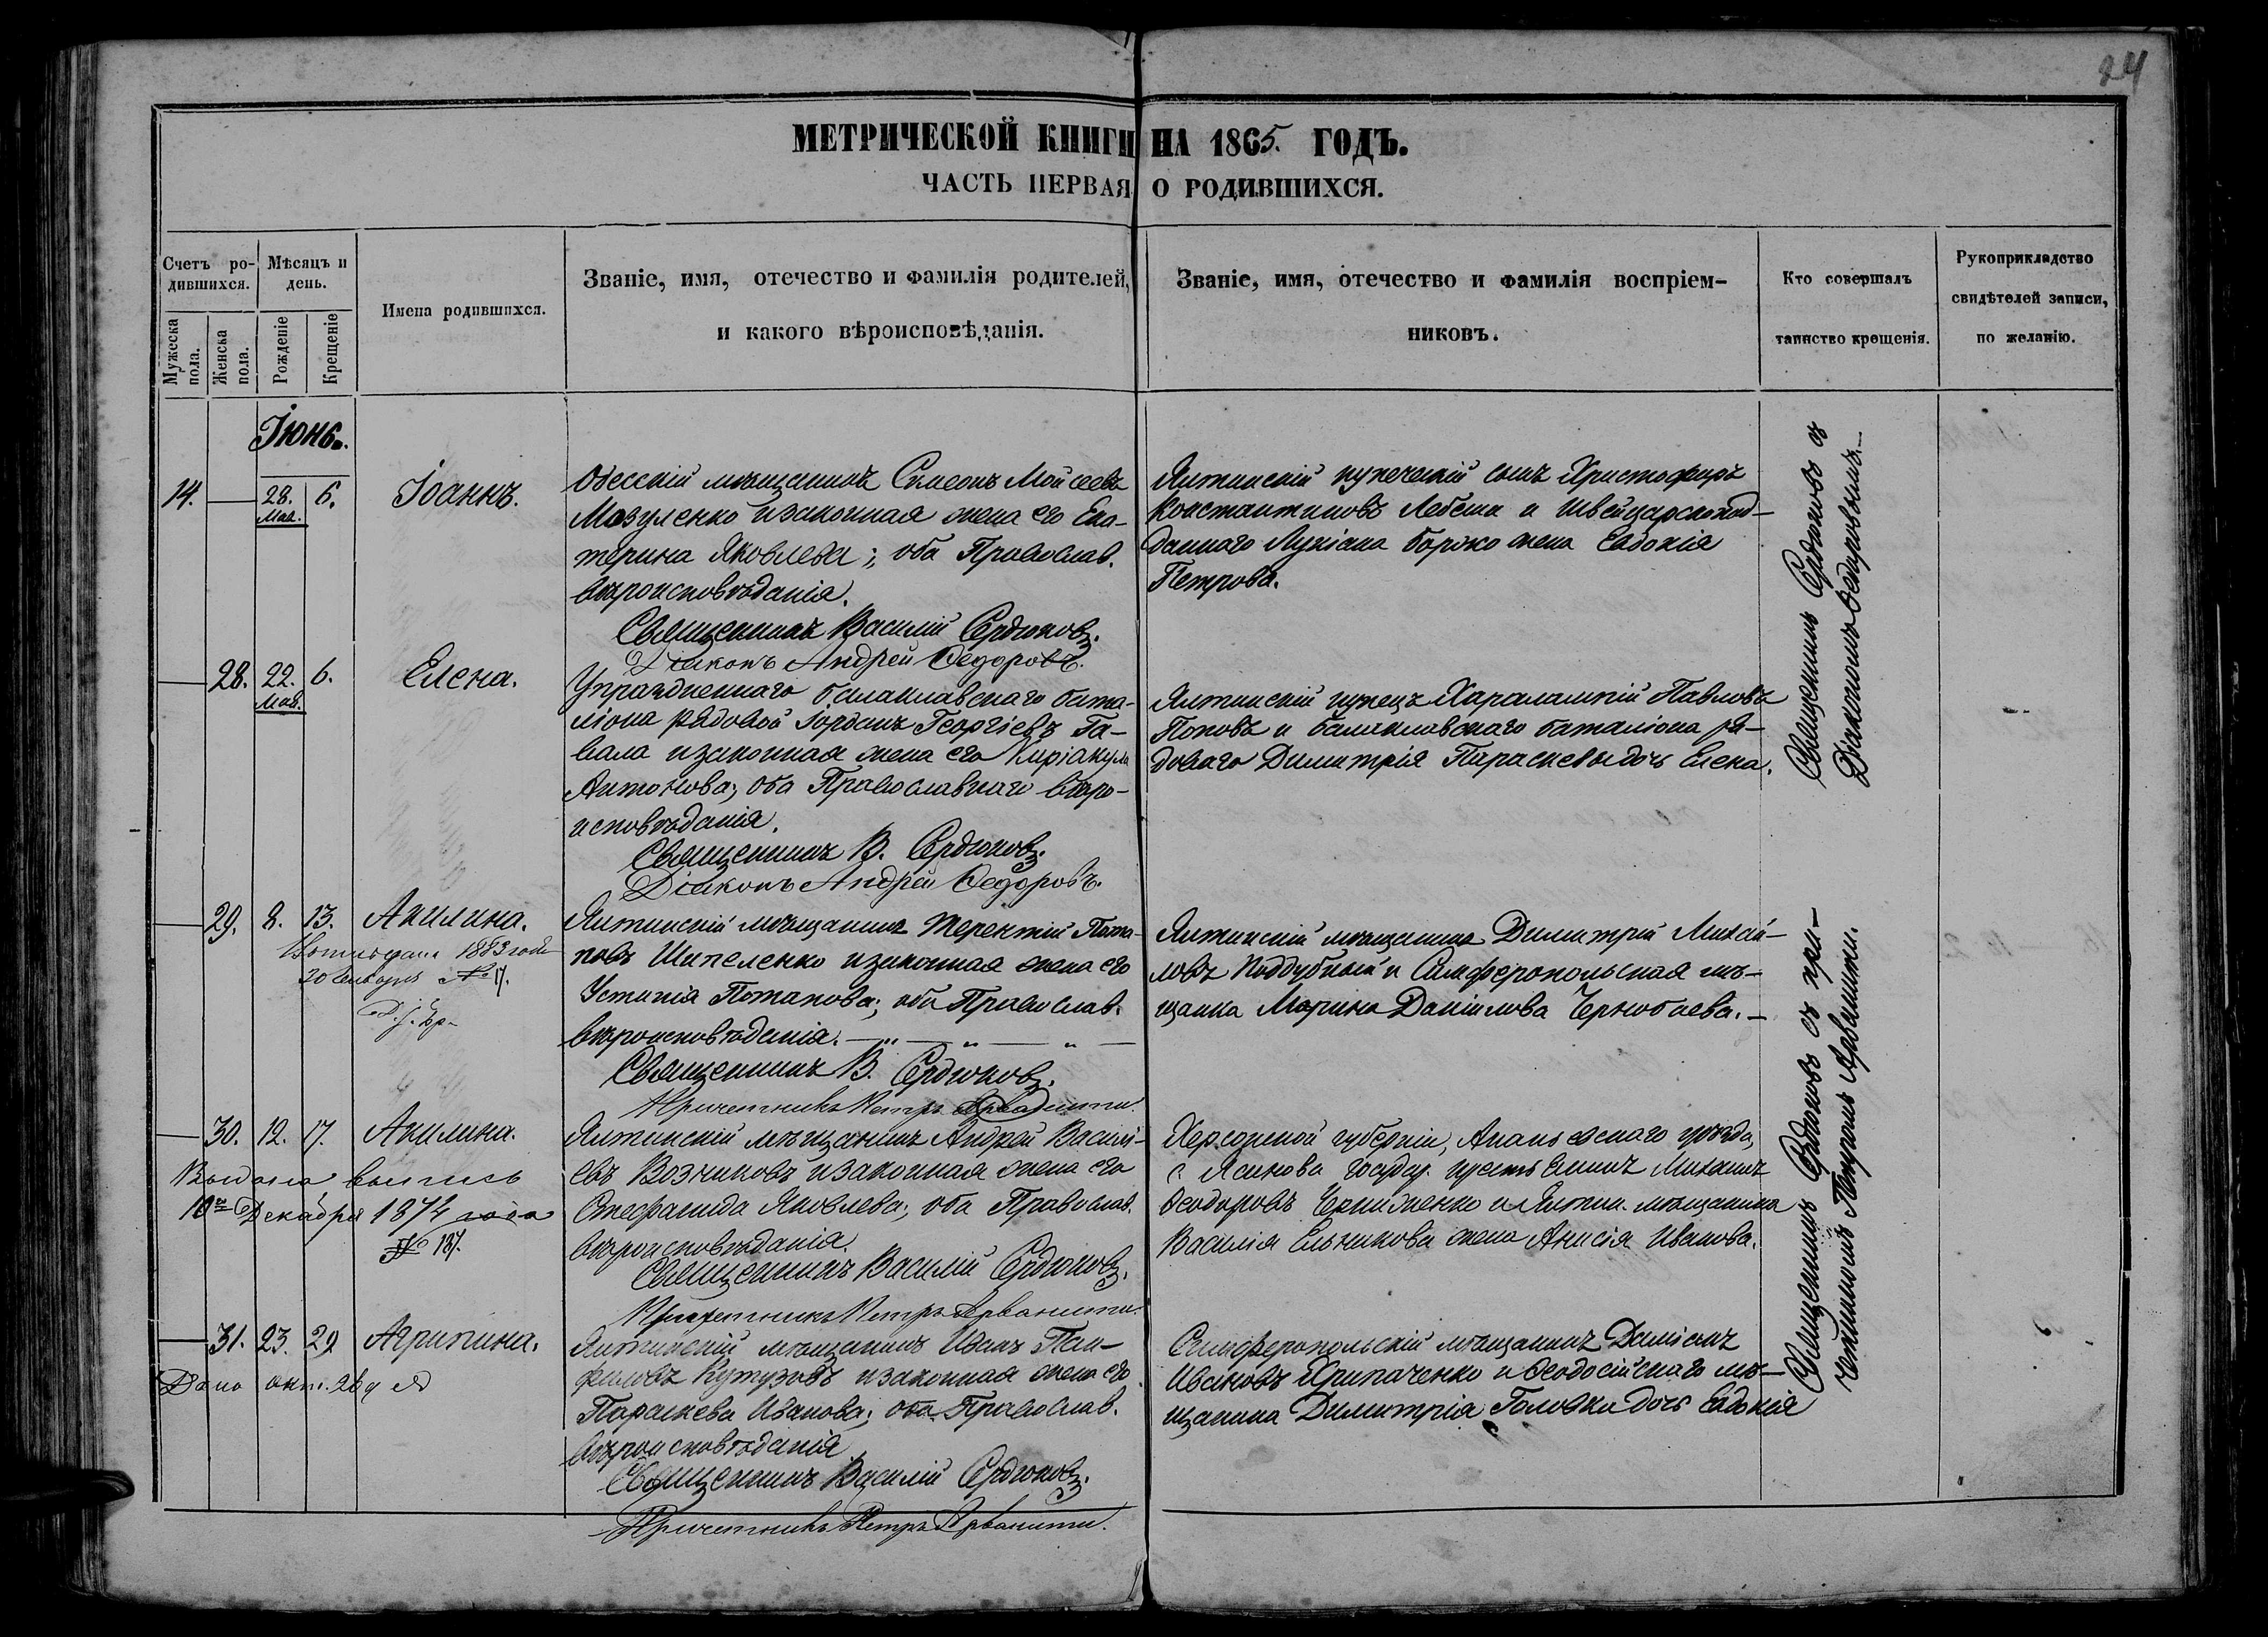 24
МЕТРИЧЕСКОЙ КНИГИ НА 1865. ГОДЪ.
ЧАСТЬ ПЕРВАЯ О РОДИВШИХСЯ.
Счетъ ро-
дившихся.
Мужеска
пола.
Женска
пола.
Мѣсяцъ и
день.
Рожденіе
Крещеніе
Имена родившихся.
Званіе, имя, отечество и фамилія родителей,
и какого вѣроисповѣданія.
Званіе, имя, отечество и фамилія воспріем-
никовъ.
Кто совершалъ
таинство крещенія.
Рукоприкладство
свидѣтелей записи,
по желанію.
Іюнь.
14. 28. Мая. 6. Іоаннъ.
Одесскій мѣщанинъ Симеонъ Мойсеевъ
Мозуленко и законная жена его Ека-
терина Яковлева; оба Православ.
вѣроисповѣданія.
Священникъ Василій Сердюковъ.
Діаконъ Андрей Ѳедоровъ.
Ялтинскій купеческій сынъ Христофоръ
Константиновъ Лебеши и Швейцарскопод-
даннаго Лукіана жена Евдокія
Петрова.
Священникъ Сердюковъ съ
Діакономъ Ѳедоровымъ.
28. 22. Мая. 6. Елена.
Упраздненнаго балаклавскаго бата-
ліона рядовой Іорданъ Георгіевъ Га-
вала и законная жена его Киріакула
Антонова; оба Православнаго вѣро-
исповѣданія.
Священникъ В. Сердюковъ.
Діаконъ Андрей Ѳедоровъ.
Ялтинскій купецъ Харалампій Павловъ
Поповъ и балаклавскаго баталіона ря-
доваго Димитрія Параскевы дочь Елена.
29. 8. 13. Акилина.
1883 года
20 Января № 17.
Ялтинскій мѣщанинъ Терентій Пота-
повъ Шипеленко и законная жена его
Устинія Потапова; оба Православ.
вѣроисповѣданія.
Священникъ В. Сердюковъ.
Причетникъ Петръ Арванити.
Ялтинскій мѣщанинъ Димитрій Михай-
ловъ Поддубный и Симферопольская мѣ-
щанка Марина Даніилова Чернобаева.
Священникъ Сердюковъ съ при-
четникомъ Петромъ Арванити.
30. 12. 17. Акилина.
Выдана выпись
10го Декабря 1874 года
№ 187.
Ялтинскій мѣщанинъ Андрей Василі-
евъ Возниковъ и законная жена его
Стефанида Яковлева; оба Православ.
вѣроисповѣданія.
Священникъ Василій Сердюковъ.
Причетникъ Петръ Арванити.
Херсонской губерніи, Ананьевскаго уѣзда,
с. Ясинова государ. крестьянинъ Михаилъ
Ѳеодоровъ и Ялтин. мѣщанина
Василія Ельникова жена Анисія Иванова.
31. 23. 29 Агрипина.
Дано окт. 26 д
Ялтинскій мѣщанинъ Иванъ Пан-
филовъ Кутузовъ и законная жена его
Параскева Иванова; оба Православ.
вѣроисповѣданія
Священникъ Василій Сердюковъ.
Причетникъ Петръ Арванити.
Симферопольскій мѣщанинъ Даніилъ
Ивановъ Хрипаченко и Ѳеодосійскаго мѣ-
щанина Димитрія Головка дочь Евдокія